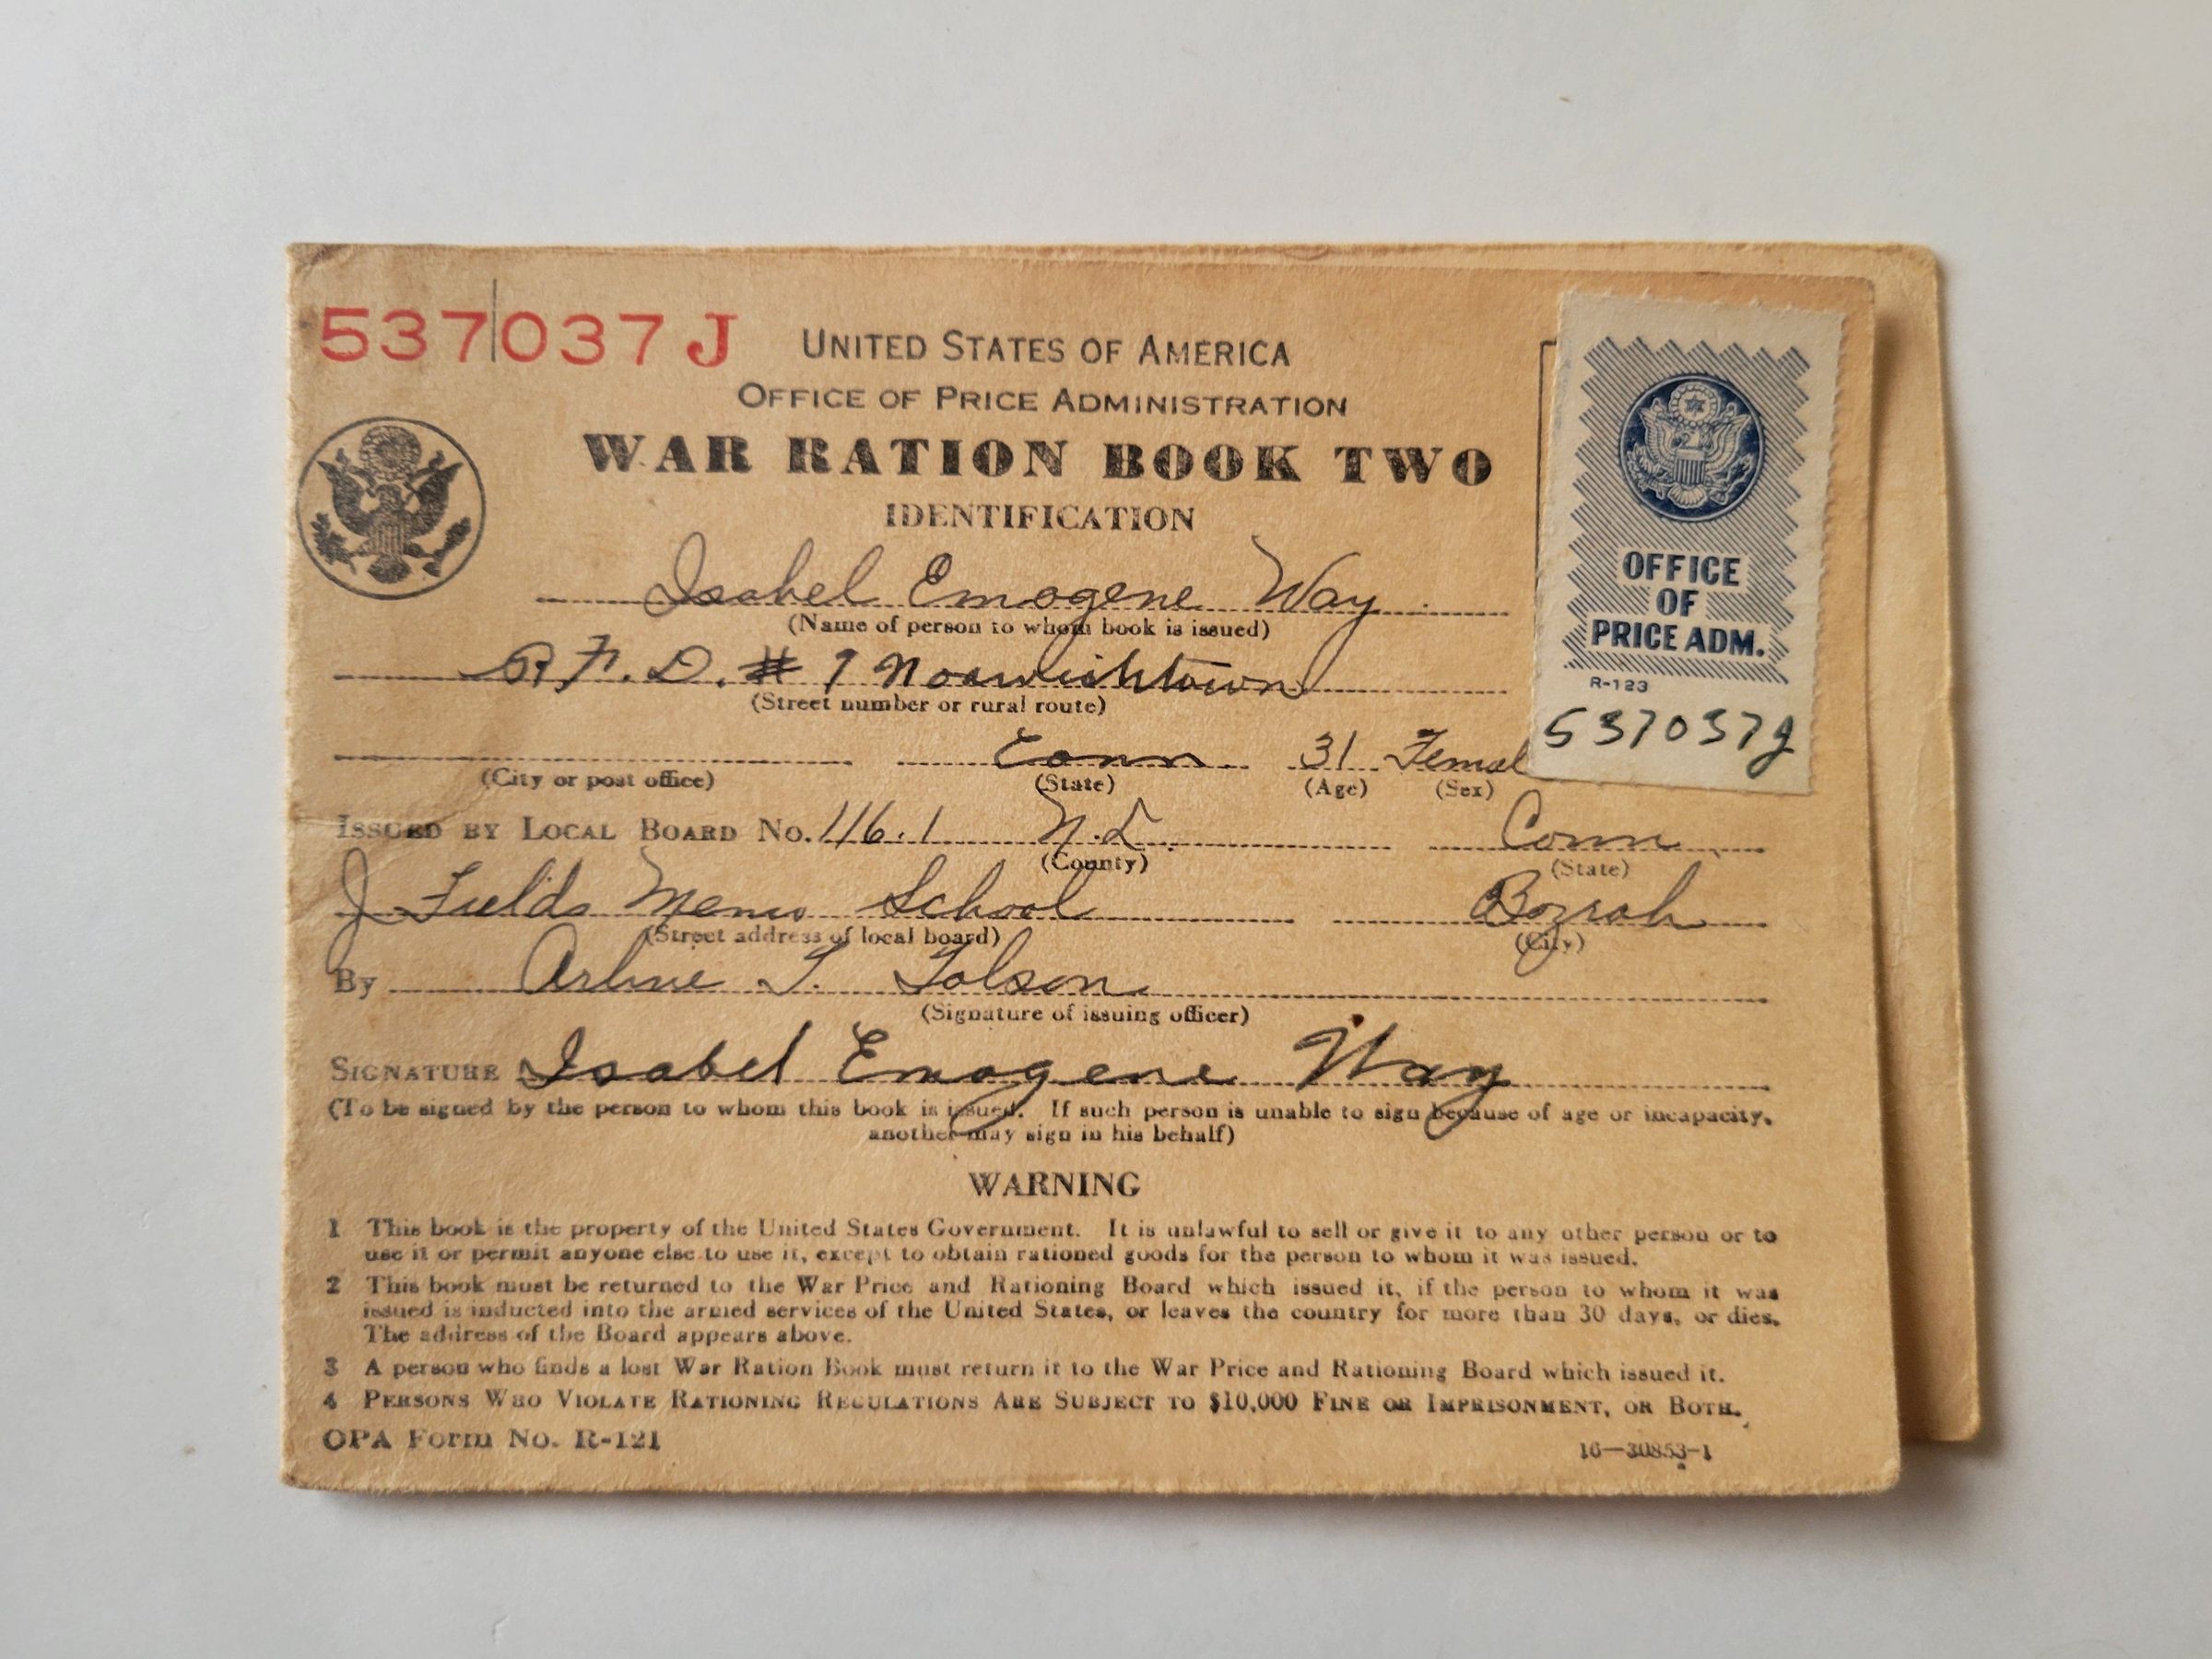 537037 J
UNITED STATES OF AMERICA
OFFICE OF PRICE ADMINISTRATION
WAR RATION BOOK TWO
IDENTIFICATION
OFFICE
OF
PRICE ADM.
R-123
537037J
Isabel Emogene Way
(Name of person to whom book is issued)
R.F.D. # 1 Norwichtown
(Street number or rural route)
Conn 31 Femal
(City or post office) (State) (Age) (Sex)
ISSUED BY LOCAL BOARD No. 116.1 N.L. Conn
(County) (State)
J Fields Memo School Bozrah
(Street address of local board) (City)
By Arline T. Tolson
(Signature of issuing officer)
SIGNATURE Isabel Emogene Way
(To be signed by the person to whom this book is issued. If such person is unable to sign because of age or incapacity,
another may sign in his behalf)
WARNING
1 This book is the property of the United States Government. It is unlawful to sell or give it to any other person or to
use it or permit anyone else to use it, except to obtain rationed goods for the person to whom it was issued.
2 This book must be returned to the War Price and Rationing Board which issued it, if the person to whom it was
issued is inducted into the armed services of the United States, or leaves the country for more than 30 days, or dies.
The address of the Board appears above.
3 A person who finds a lost War Ration Book must return it to the War Price and Rationing Board which issued it.
4 PERSONS WHO VIOLATE RATIONING REGULATIONS ARE SUBJECT TO $10,000 FINE OR IMPRISONMENT, OR BOTH.
OPA Form No. R-121
16—30853-1